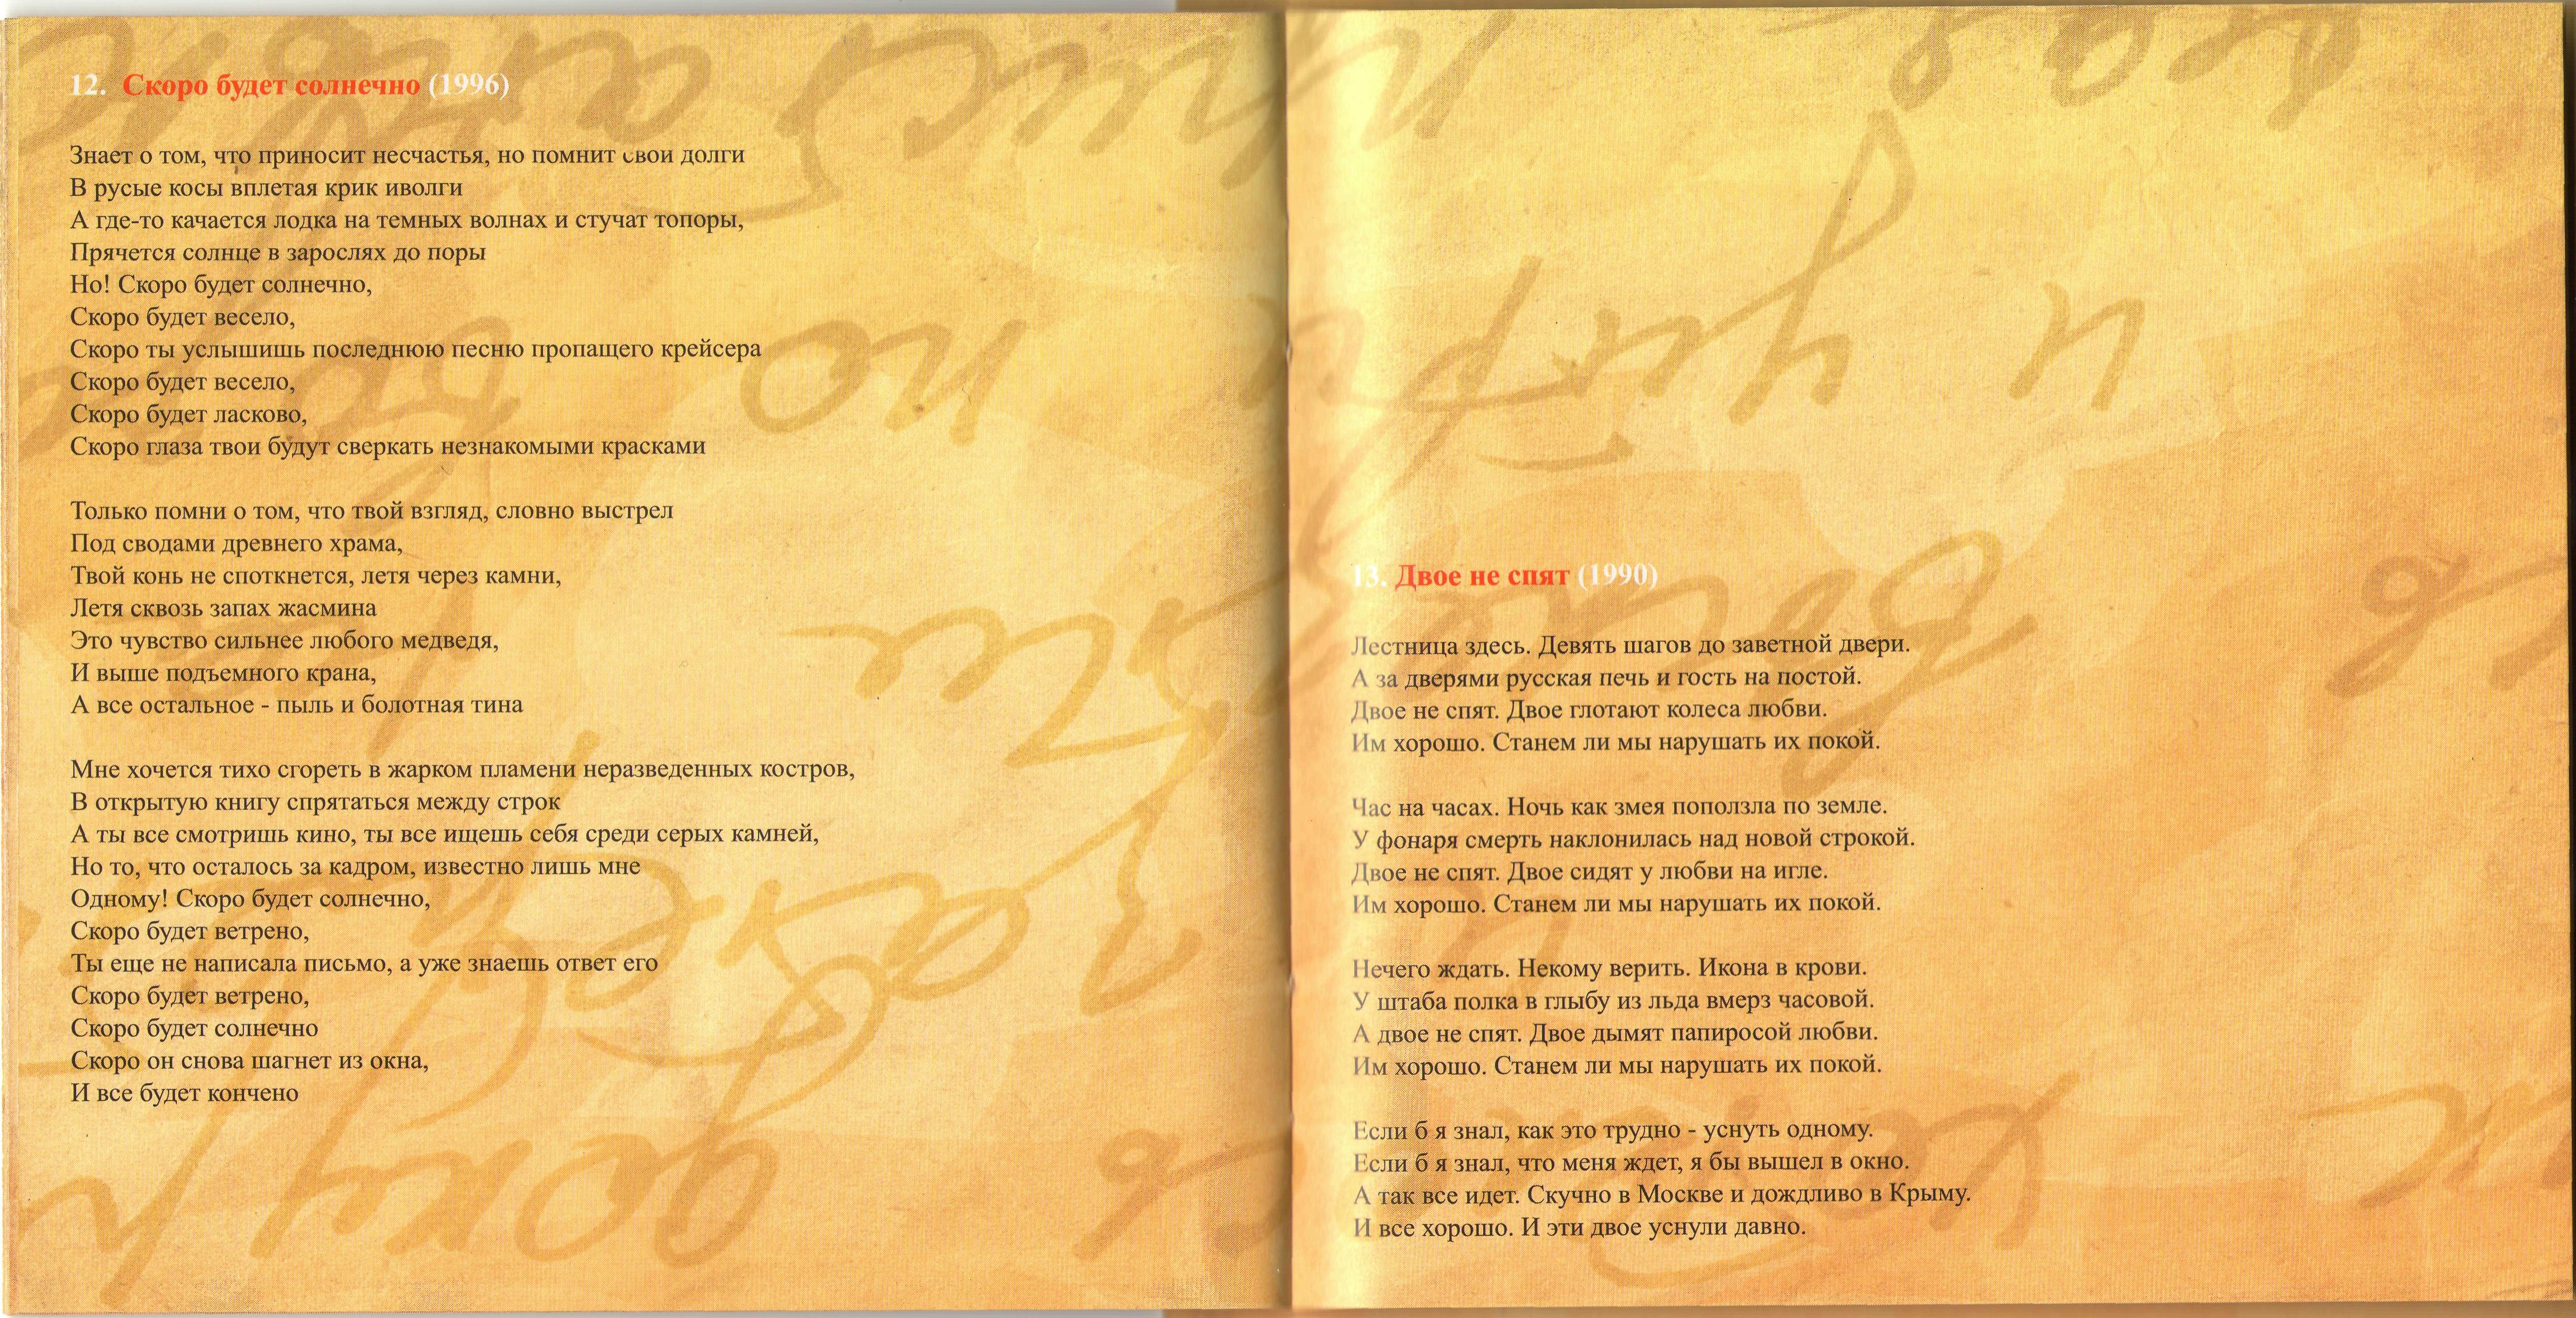 12. Скоро будет солнечно (1996)
Знает о том, что приносит несчастья, но помнит свои долги
В русые косы вплетая крик иволги
А где-то качается лодка на темных волнах и стучат топоры,
Прячется солнце в зарослях до поры
Но! Скоро будет солнечно,
Скоро будет весело,
Скоро ты услышишь последнюю песню пропащего крейсера
Скоро будет весело,
Скоро будет ласково,
Скоро глаза твои будут сверкать незнакомыми красками
Только помни о том, что твой взгляд, словно выстрел
Под сводами древнего храма,
Твой конь не споткнется, летя через камни,
Летя сквозь запах жасмина
Это чувство сильнее любого медведя,
И выше подъемного крана,
А все остальное - пыль и болотная тина
Мне хочется тихо сгореть в жарком пламени неразведенных костров,
В открытую книгу спрятаться между строк
А ты все смотришь кино, ты все ищешь себя среди серых камней,
Но то, что осталось за кадром, известно лишь мне
Одному! Скоро будет солнечно,
Скоро будет ветрено,
Ты еще не написала письмо, а уже знаешь ответ его
Скоро будет ветрено,
Скоро будет солнечно
Скоро он снова шагнет из окна,
И все будет кончено
13. Двое не спят (1990)
Лестница здесь. Девять шагов до заветной двери.
А за дверями русская печь и гость на постой.
Двое не спят. Двое глотают колеса любви.
Им хорошо. Станем ли мы нарушать их покой.
Час на часах. Ночь как змея поползла по земле.
У фонаря смерть наклонилась над новой строкой.
Двое не спят. Двое сидят у любви на игле.
Им хорошо. Станем ли мы нарушать их покой.
Нечего ждать. Некому верить. Икона в крови.
У штаба полка в глыбу из льда вмерз часовой.
А двое не спят. Двое дымят папиросой любви.
Им хорошо. Станем ли мы нарушать их покой.
Если б я знал, как это трудно - уснуть одному.
Если б я знал, что меня ждет, я бы вышел в окно.
А так все идет. Скучно в Москве и дождливо в Крыму.
И все хорошо. И эти двое уснули давно.